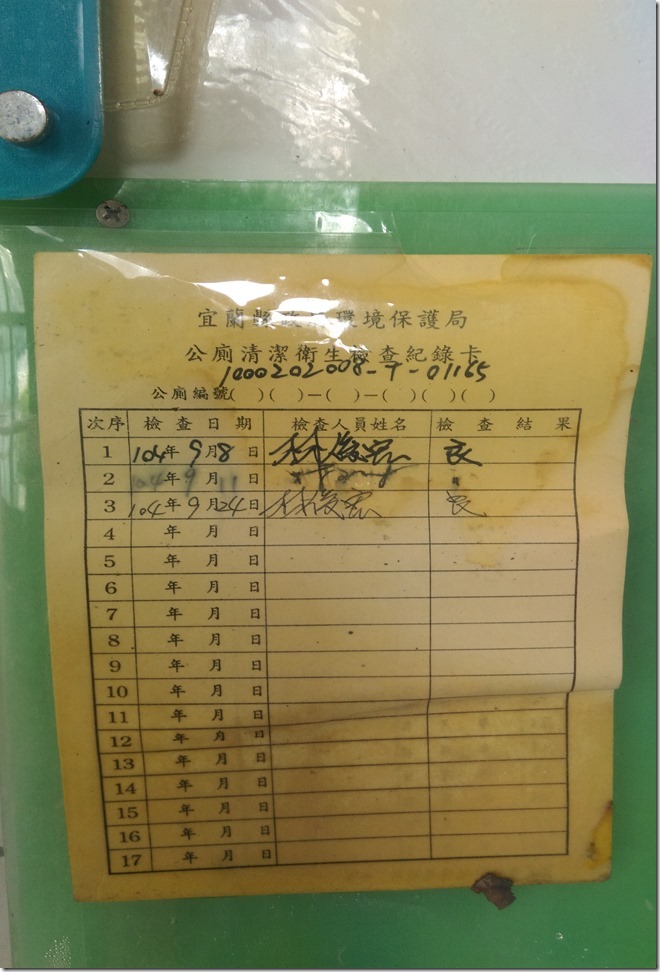 宜蘭縣政 環境保護局
公廁清潔衛生檢查紀錄卡
1000202008-T-01165
公廁編號( )( )—( )—( )( )( )
次序 檢查日期 檢查人員姓名 檢查結果
1 104年9月8日 林俊宏 良
2 104年9月11日 "
3 104年9月24日 林俊宏 良
4 年 月 日
5 年 月 日
6 年 月 日
7 年 月 日
8 年 月 日
9 年 月 日
10 年 月 日
11 年 月 日
12 年 月 日
13 年 月 日
14 年 月 日
15 年 月 日
16 年 月 日
17 年 月 日